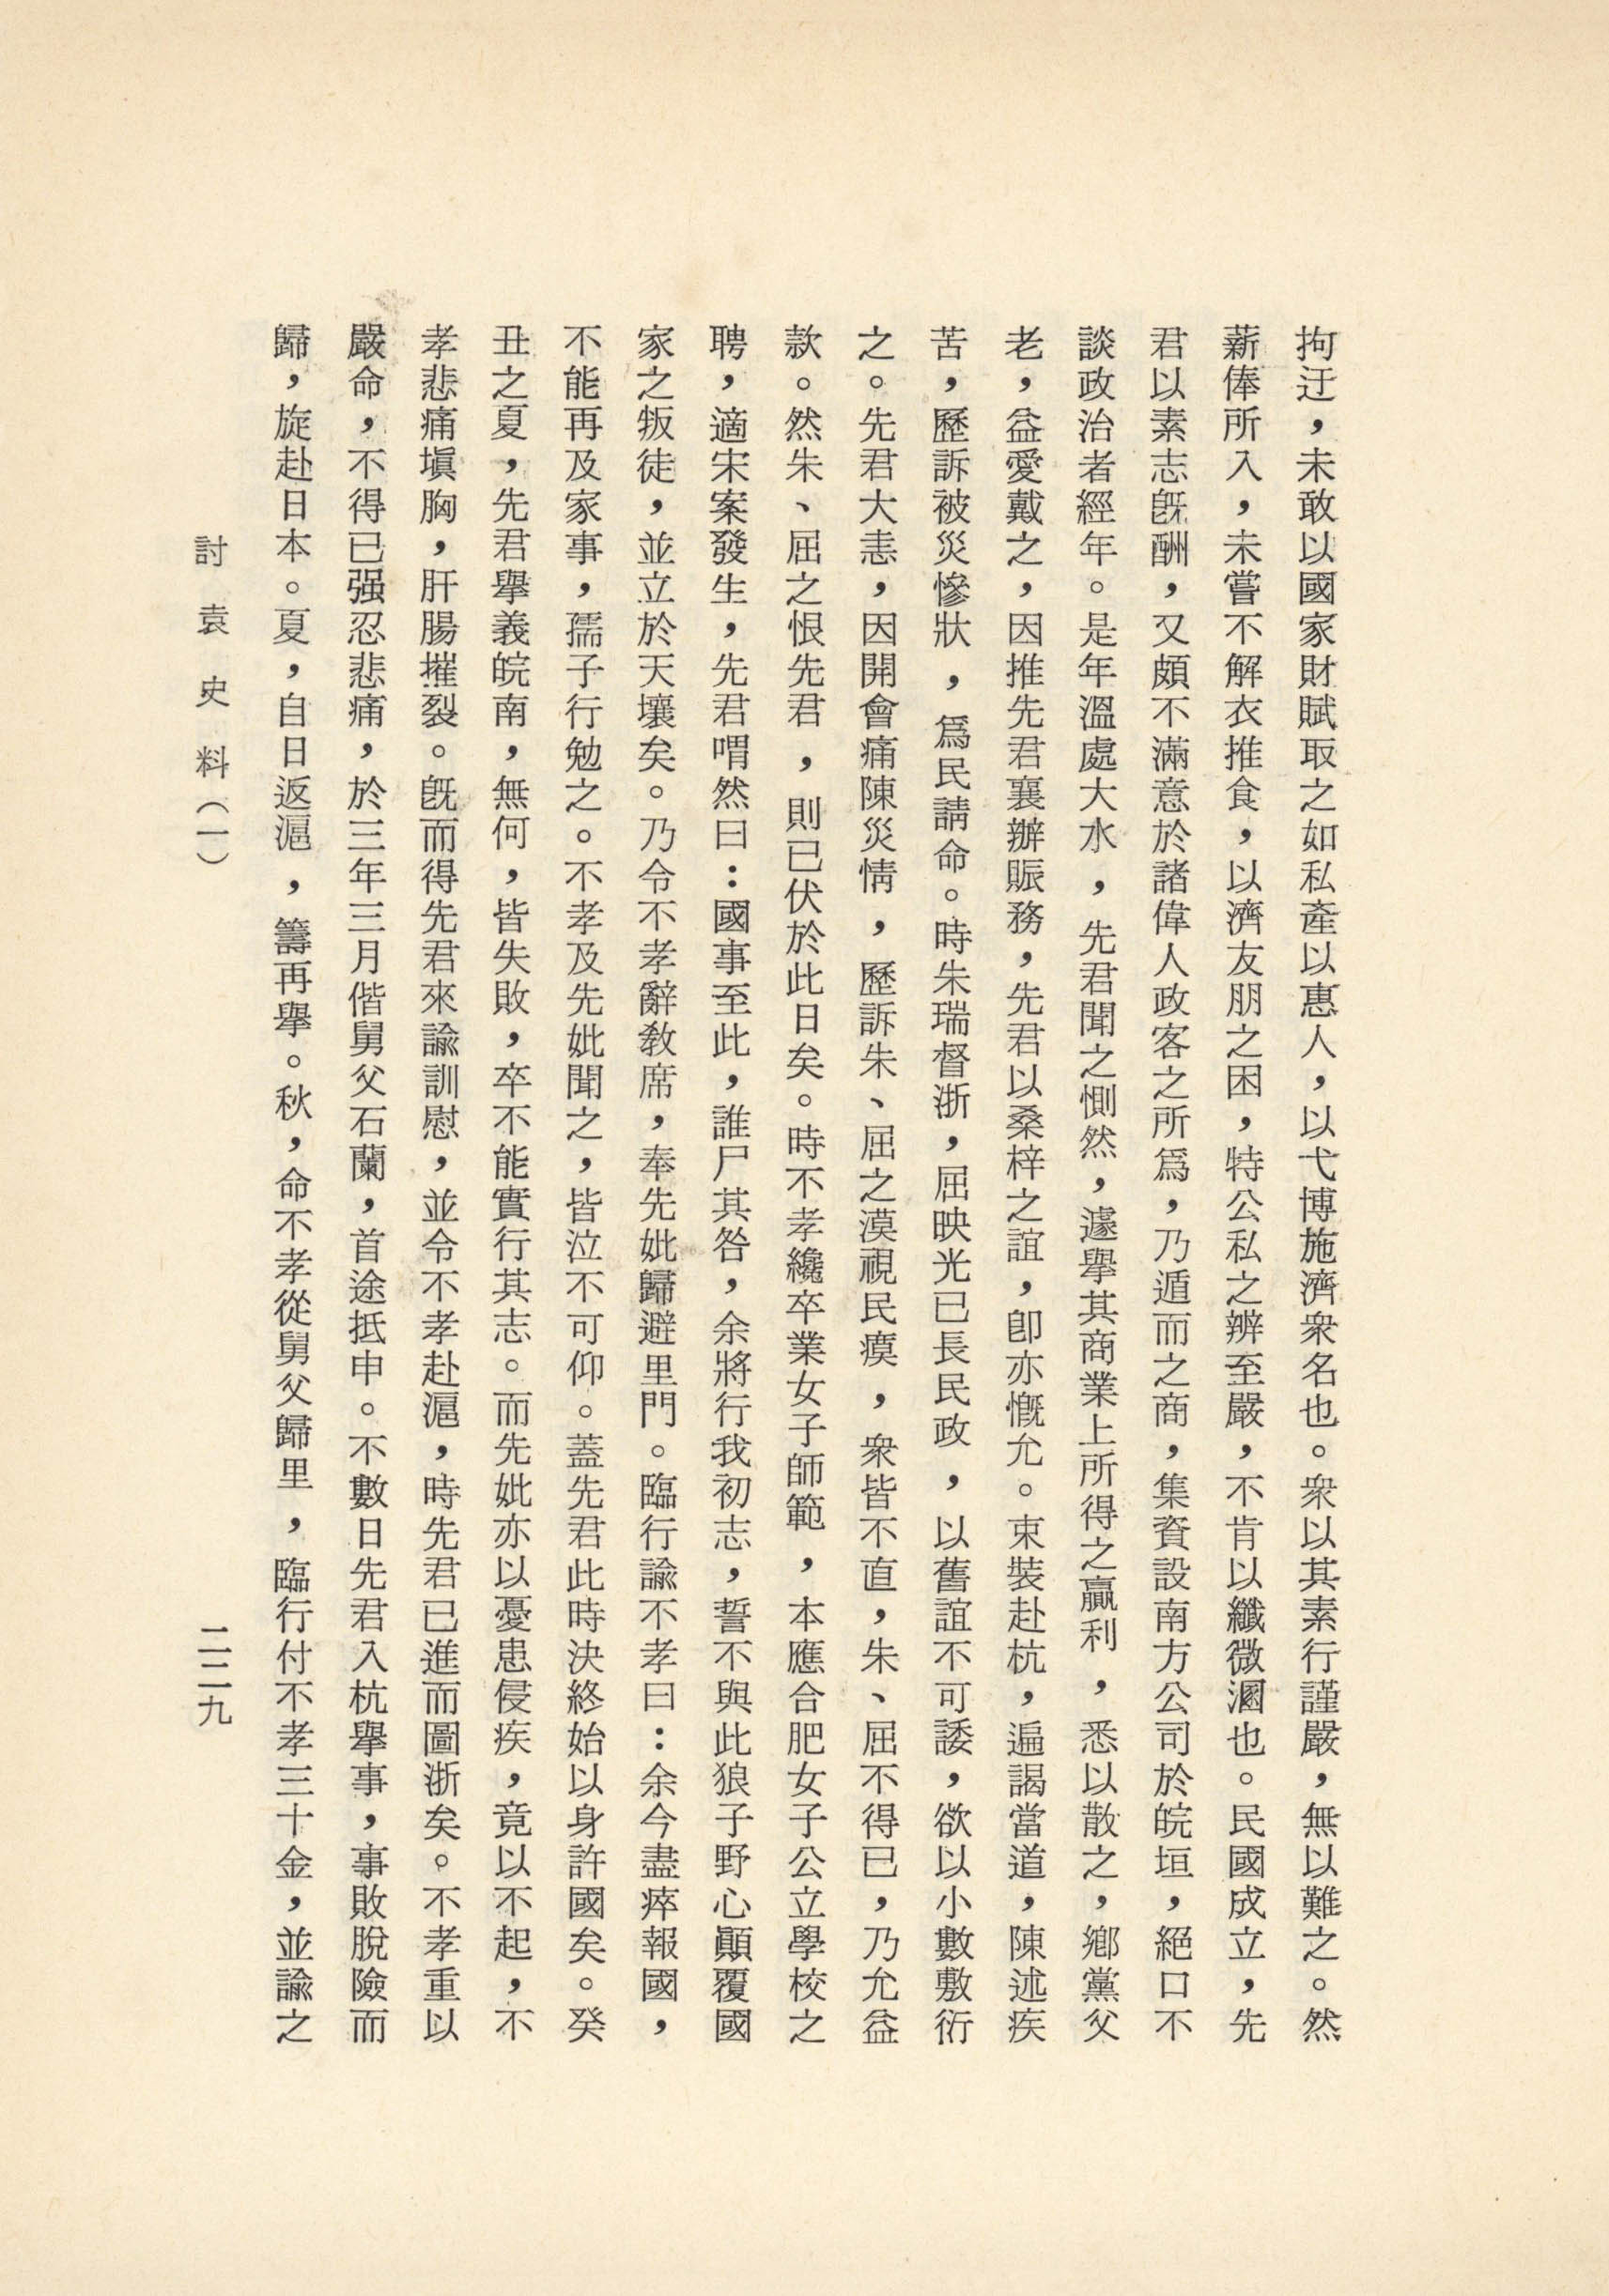 拘迂，未敢以國家財賦取之如私產以惠人，以弋博施濟衆名也。衆以其素行謹嚴，無以難之。然
薪俸所入，未嘗不解衣推食，以濟友朋之困，特公私之辨至嚴，不肯以纖微溷也。民國成立，先
君以素志旣酬，又頗不滿意於諸偉人政客之所爲，乃遁而之商，集資設南方公司於皖垣，絕口不
談政治者經年。是年溫處大水，先君聞之惻然，遽舉其商業上所得之贏利，悉以散之，鄉黨父
老，益愛戴之，因推先君襄辦賑務，先君以桑梓之誼，卽亦慨允。束裝赴杭，遍謁當道，陳述疾
苦，歷訴被災慘狀，爲民請命。時朱瑞督浙，屈映光已長民政，以舊誼不可諉，欲以小數敷衍
之。先君大恚，因開會痛陳災情，歷訴朱、屈之漠視民瘼，衆皆不直，朱、屈不得已，乃允益
款。然朱、屈之恨先君，則已伏於此日矣。時不孝纔卒業女子師範，本應合肥女子公立學校之
聘，適宋案發生，先君喟然曰：國事至此，誰尸其咎，余將行我初志，誓不與此狼子野心顚覆國
家之叛徒，並立於天壤矣。乃令不孝辭敎席，奉先妣歸避里門。臨行諭不孝曰：余今盡瘁報國，
不能再及家事，孺子行勉之。不孝及先妣聞之，皆泣不可仰。蓋先君此時決終始以身許國矣。癸
丑之夏，先君舉義皖南，無何，皆失敗，卒不能實行其志。而先妣亦以憂患侵疾，竟以不起，不
孝悲痛塡胸，肝腸摧裂。旣而得先君來諭訓慰，並令不孝赴滬，時先君已進而圖浙矣。不孝重以
嚴命，不得已强忍悲痛，於三年三月偕舅父石蘭，首途抵申。不數日先君入杭舉事，事敗脫險而
歸，旋赴日本。夏，自日返滬，籌再舉。秋，命不孝從舅父歸里，臨行付不孝三十金，並諭之
討袁史料（一）
二二九